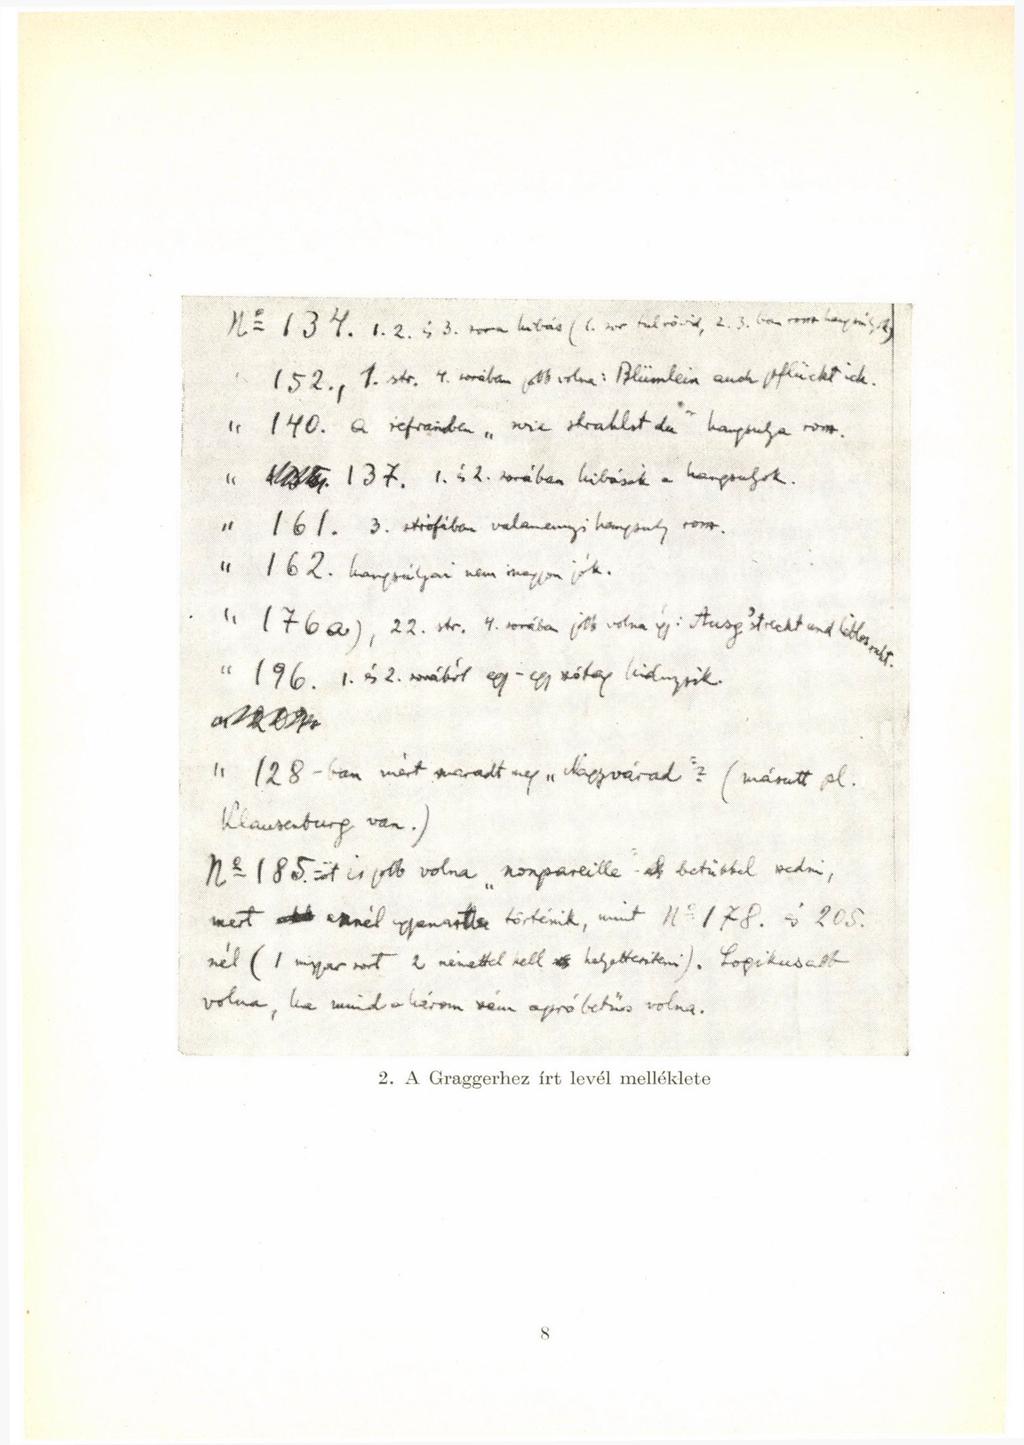 No 134. 1. 2. és 3. sora hibás (1. sor túlrövid, 2. 3. ban rossz hangsúly)
152., 1. str. 4. sorában jobb volna: Blümlein auch pflückt ich.
" 140. a refrainben „wie strahlst du" hangsulya rossz.
" 137. 1. és 2. sorában hibásak a hangsulyok.
" 161. 3. strófában valamennyi hangsuly rossz.
" 162. hangsúlyai nem nagyon jók.
" 176a), 22. str. 4. sorában jobb volna így: Ausg'streckt und leblos
" 196. 1. és 2. sorából egy-egy szótag hiányzik.
" 128-ban mért maradt meg „Nagyvárad"? (másutt pl.
Klausenburg van.)
No 185.-öt is jobb volna „nonpareille" betűkkel szedni,
mert annál ugyanaz történik, mint No 178. és 205.
nél (1 magyar sort 2 némettel kell helyettesíteni). Logikusabb
volna, ha mind a három szám apróbetűs volna.
2. A Graggerhez írt levél melléklete
8